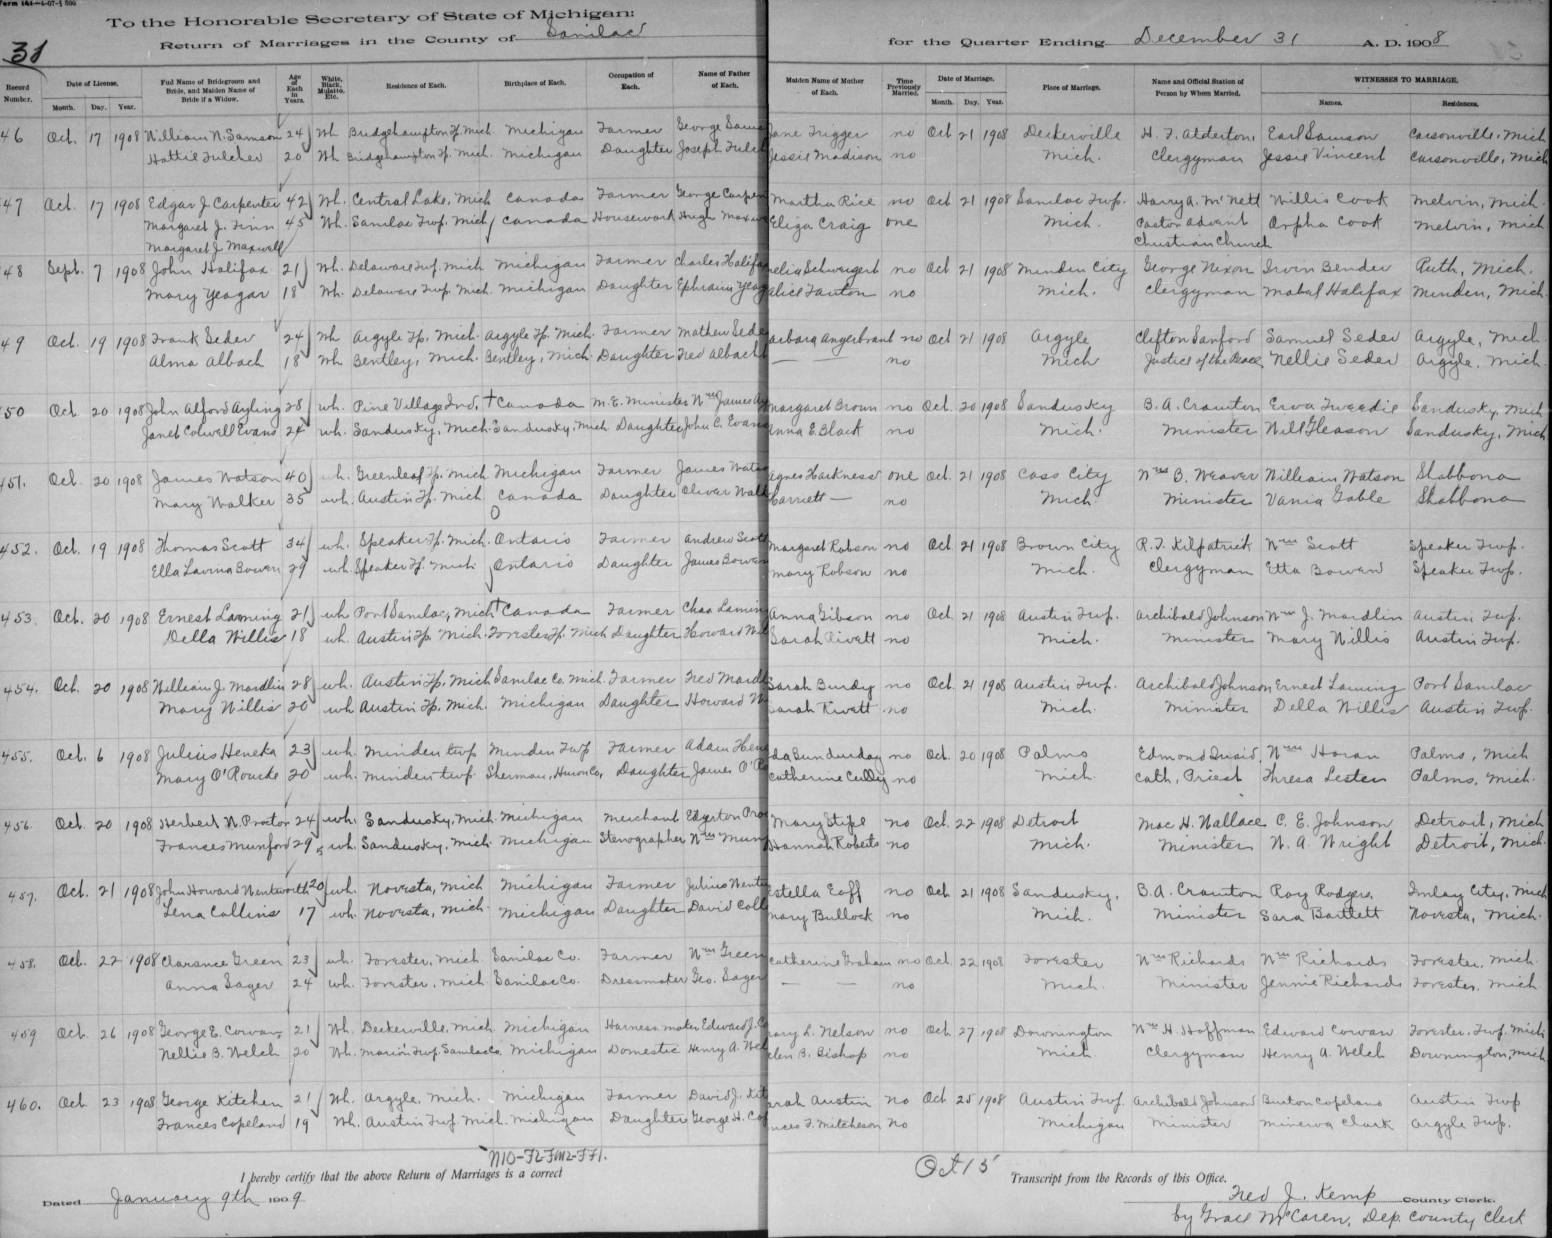 To the Honorable Secretary of State of Michigan:
31
Return of Marriages in the County of Sanilac for the Quarter Ending December 31 A. D. 1908
Record Number. Date of License. Month. Day. Year. Full Name of Bridegroom and Bride, and Maiden Name of Bride if a Widow. Age of Each in Years. White, Black, Mulatto, Etc. Residence of Each. Birthplace of Each. Occupation of Each. Name of Father of Each. Maiden Name of Mother of Each. Time Previously Married. Date of Marriage. Month. Day. Year. Place of Marriage. Name and Official Station of Person by Whom Married. WITNESSES TO MARRIAGE. Names. Residences.
46 Oct. 17 1908 William N. Samson 24 Wh Bridgehampton Tp. Mich. Michigan Farmer George Sams Jane Trigger no Oct 21 1908 Deckerville H. F. Alderton, Earl Samson Carsonville, Mich
Hattie Fulcher 20 Wh Bridgehampton Tp. Mich. Michigan Daughter Joseph Fulch Jessie Madison no Mich. Clergyman Jessie Vincent Carsonville, Mich
47 Oct. 17 1908 Edgar J Carpenter 42 Wh. Central Lake, Mich Canada Farmer George Carpen Martha Rice no Oct 21 1908 Sanilac Twp. Harry A. McNett Willis Cook Melvin, Mich.
Margaret J. Finn 45 Wh. Sanilac Twp. Mich Canada Housework Hugh Maxw Eliza Craig one Mich. Pastor Advent Orpha Cook Melvin, Mich
Margaret J Maxwell Christian Church
48 Sept. 7 1908 John Halifax 21 Wh. Delaware Twp. Mich Michigan Farmer Charles Halifa elia Schweigert no Oct 21 1908 Minden City George Nixon Irvin Bender Ruth, Mich.
Mary Yeagar 18 Wh. Delaware Twp. Mich. Michigan Daughter Ephraim Yeag Alice Fanton no Mich. Clergyman Mabel Halifax Minden, Mich.
49 Oct. 19 1908 Frank Seder 24 Wh Argyle Tp. Mich. Argyle Tp. Mich. Farmer Mathew Sede arbara Angerbrant no Oct 21 1908 Argyle Clifton Sanford Samuel Seder Argyle, Mich
Alma Albach 18 Wh Bentley, Mich. Bentley, Mich Daughter Fred Albach — — no Mich Justice of the Peace, Nellie Seder Argyle, Mich.
50 Oct. 20 1908 John Alford Ayling 28 wh. Pine Village Ind. + Canada M. E. Minister Wm James Ay Margaret Brown no Oct. 20 1908 Sandusky B. A. Cramton Erva Tweedie Sandusky, Mich
Janet Colwell Evans 24 wh. Sandusky, Mich. Sandusky, Mich Daughter John C. Evans Anna E. Black no Mich. Minister Will Gleason Sandusky, Mich
451. Oct. 20 1908 James Watson 40 wh. Greenleaf Tp. Mich Michigan Farmer James Wats Agnes Harkness one Oct. 21 1908 Cass City Wm B. Weaver William Watson Shabbona
Mary Walker 35 wh. Austin Tp. Mich Canada Daughter Oliver Walk Harriett — no Mich. Minister Vania Gable Shabbona
452. Oct. 19 1908 Thomas Scott 34 wh. Speaker Tp. Mich. Ontario Farmer Andrew Scott Margaret Robson no Oct 21 1908 Brown City R. F. Kilpatrick Wm Scott Speaker Twp.
Ella Lavina Bowen 29 wh. Speaker Tp. Mich Ontario Daughter James Bowen Mary Robson no Mich. Clergyman Etta Bowen Speaker Twp.
453. Oct. 20 1908 Ernest Laming 21 wh Port Sanilac, Mich + Canada Farmer Chas Lamin Anna Gibson no Oct 21 1908 Austin Twp. Archibald Johnson Wm J. Mardlin Austin Twp.
Della Willis 18 wh. Austin Tp. Mich. Forester Tp. Mich Daughter Howard Wil Sarah Rivett no Mich. Minister Mary Willis Austin Twp.
454. Oct. 20 1908 William J. Mardlin 28 wh. Austin Tp. Mich Sanilac Co. Mich. Farmer Fred Mardl Sarah Burdy no Oct. 21 1908 Austin Twp. Archibald Johnson Ernest Laming Port Sanilac
Mary Willis 20 wh Austin Tp. Mich. Michigan Daughter Howard W Sarah Rivett no Mich. Minister Della Willis Austin Twp.
455. Oct. 6 1908 Julius Heneka 23 wh. Minden twp Minden Twp Farmer Adam Hen da Sunderday no Oct. 20 1908 Palms Edmond Wm Horan Palms, Mich
Mary O'Rourke 20 wh. Minden twp. Sherman, Huron Co, Daughter James O'R Catherine Cully no Mich. Cath. Priest Thresa Lester Palms, Mich.
456. Oct. 20 1908 Herbert N. Proctor 24 wh. Sandusky, Mich. Michigan Merchant Edgerton Proc Mary Stipe no Oct. 22 1908 Detroit Mac H. Wallace C. E. Johnson Detroit, Mich
Frances Munford 29 wh. Sandusky, Mich. Michigan Stenographer Wm Mun Hannah Roberts no Mich. Minister W. A. Wright Detroit, Mich.
457. Oct. 21 1908 John Howard Wentworth 20 wh. Novesta, Mich Michigan Farmer Julius Went Estella Eoff no Oct. 21 1908 Sandusky, B. A. Cramton Roy Rodgers Imlay City, Mich
Lena Collins 17 wh. Novesta, Mich. Michigan Daughter David Coll Mary Bullock no Mich. Minister Sara Bartlett Novesta, Mich.
458. Oct. 22 1908 Clarance Green 23 wh. Forester, Mich Sanilac Co. Farmer Wm Green Catherine Graham no Oct 22 1908 Forester Wm Richards Wm Richards Forester, Mich.
Anna Sager 24 wh. Forester, Mich Sanilac Co. Dressmaker Geo. Sager — — no Mich. Minister Jennie Richards Forester, Mich
459 Oct. 26 1908 George E. Cowan 21 Wh. Deckerville, Mich. Michigan Harness maker Edward J. C ary L. Nelson no Oct. 27 1908 Downington Wm H. Hoffman Edward Cowan Forester Twp. Mich
Nellie B. Welch 20 Wh. Marion Twp. Sanilac Co. Michigan Domestic Henry A. Wel elen B. Bishop no Mich Clergyman Henry A. Welch Downington, Mich
460. Oct 23 1908 George Kitchen 21 Wh. Argyle, Mich. Michigan Farmer David J. Kit arah Austin no Oct 25 1908 Austin Twp. Archibald Johnson Burton Copeland Austin Twp
Frances Copeland 19 Wh. Austin Twp. Mich. Michigan Daughter George H. Cop nces F. Mitcheson no Michigan Minister Minerva Clark Argyle Twp.
I hereby certify that the above Return of Marriages is a correct Transcript from the Records of this Office.
Oct 15
Dated January 9th 1909 Fred J. Kemp County Clerk.
by Grace McCaren, Dep. County Clerk